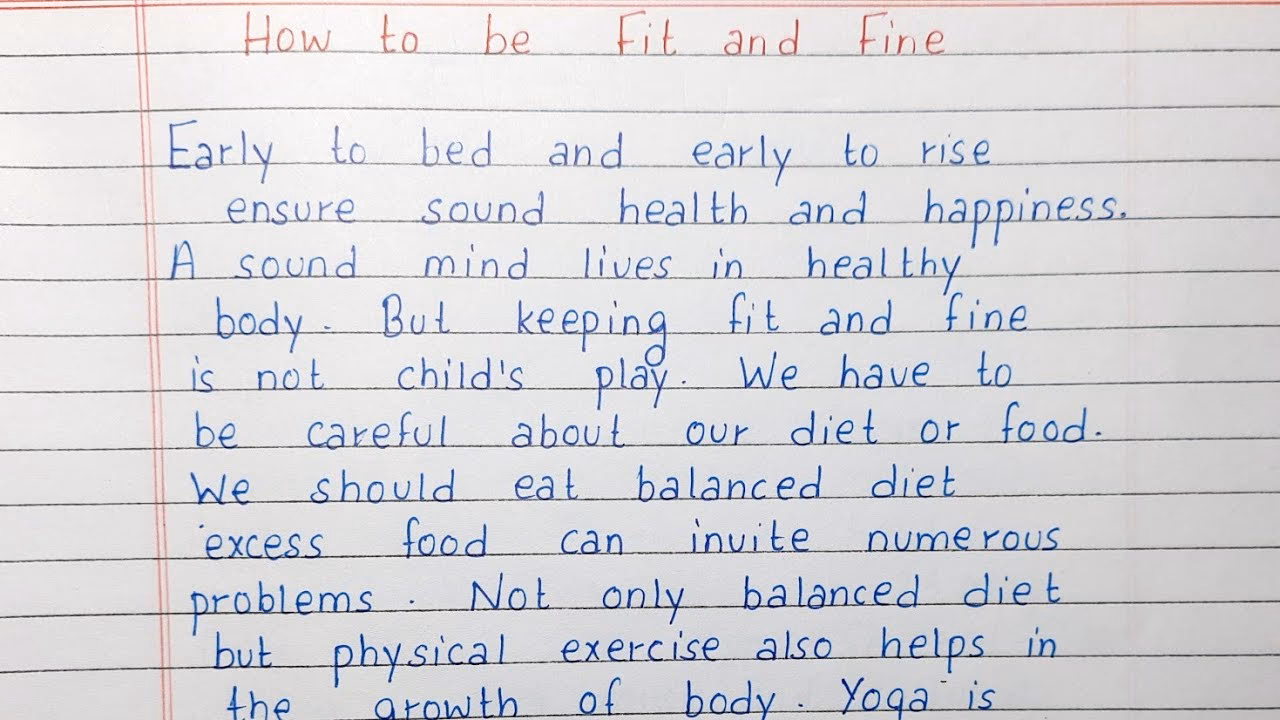 How to be Fit and Fine
Early to bed and early to rise
ensure sound health and happiness.
A sound mind lives in healthy
body. But keeping fit and fine
is not child's play. We have to
be careful about our diet or food.
We should eat balanced diet
excess food can invite numerous
problems. Not only balanced diet
but physical exercise also helps in
the growth of body. Yoga is